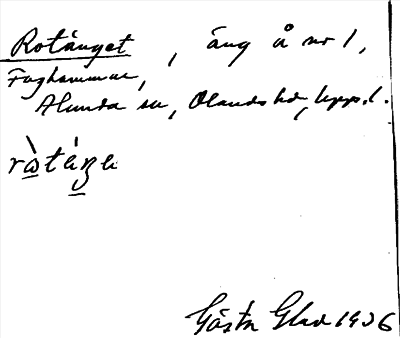 Rotänget, äng å nr 1,
Foghammar,
Alunda sn, Olands hd, Uppl.
Gösta Glad 1936